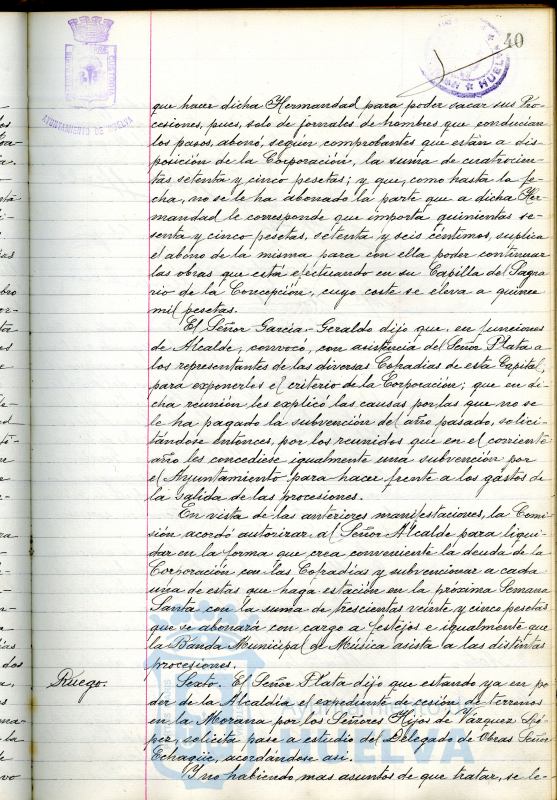 40
AYUNTAMIENTO DE HUELVA
HUELVA
que hacer dicha Hermandad para poder sacar sus Pro-
cesiones, pues, solo de jornales de hombres que conducian
los pasos, abonó, según comprobantes que están a dis-
posición de la Corporación, la suma de cuatrocien-
tas setenta y cinco pesetas; y que, como hasta la fe-
cha, no se le ha abonado la parte que a dicha Her-
mandad le corresponde que importa quinientas se-
senta y cinco pesetas, setenta y seis céntimos, suplica
el abono de la misma para con ella poder continuar
las obras que está efectuando en su Capilla del Sagra-
rio de la Concepción, cuyo coste se eleva a quince
mil pesetas.
El Señor García-Geraldo dijo que, en funciones
de Alcalde, convocó, con asistencia del Señor Plata a
los representantes de las diversas Cofradias de esta Capital,
para exponerles el criterio de la Corporación; que en di-
cha reunión les explicó las causas por las que no se
le ha pagado la subvención del año pasado, solici-
tándose entonces, por los reunidos que en el corriente
año les concediese igualmente una subvención por
el Ayuntamiento para hacer frente a los gastos de
la salida de las procesiones.
En vista de las anteriores manifestaciones, la Comi-
sión, acordó autorizar al Señor Alcalde para liqui-
dar en la forma que crea conveniente la deuda de la
Corporación con las Cofradías y subvencionar a cada
una de estas que haga estación en la próxima Semana
Santa con la suma de trescientas veinte y cinco pesetas
que se abonará con cargo a festejos e igualmente que
la Banda Municipal de Música asista a las distintas
procesiones.
Ruego. Sexto. El Señor Plata dijo que estando ya en po-
der de la Alcaldia el expediente de cesión de terrenos
en la Morana por los Señores Hijos de Vázquez Ló-
pez, solicita pase a estudio del Delegado de Obras Señor
Echagüe, acordándose así.
Y no habiendo mas asuntos de que tratar, se le-
HUELVA